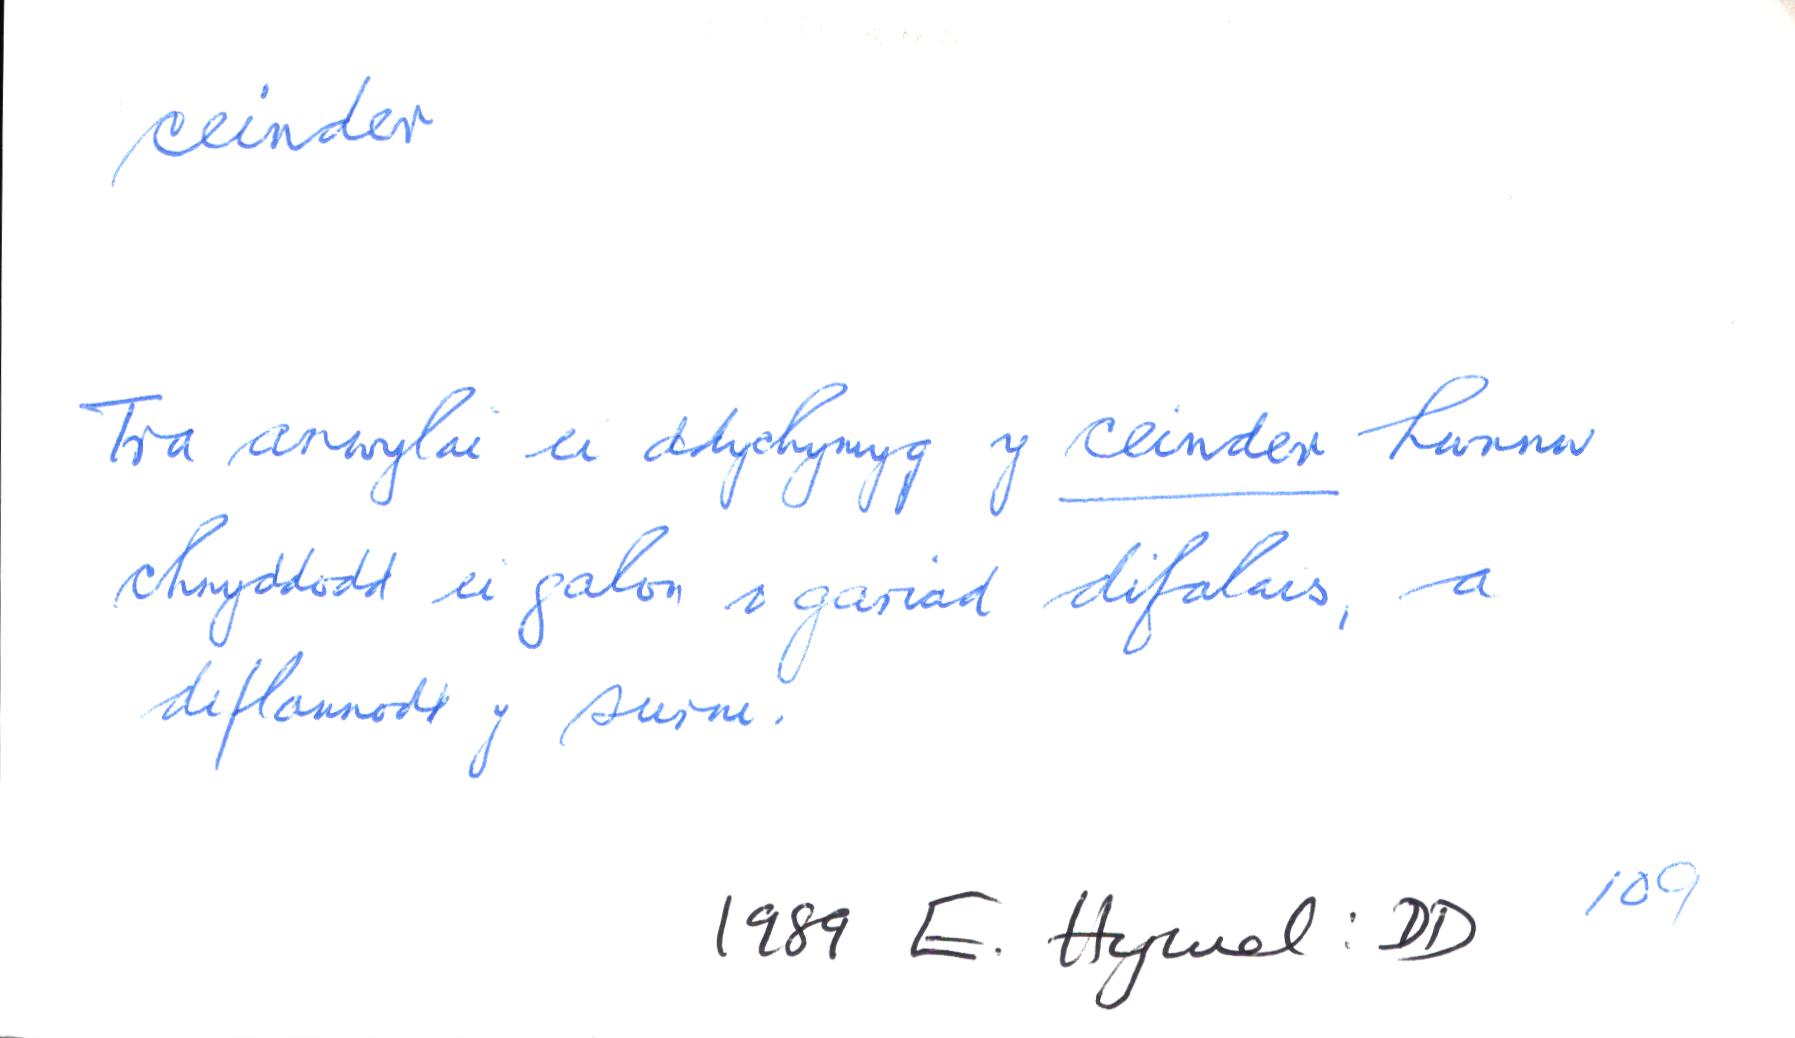 ceinder
Tra anwylai ei ddychymyg y ceinder hwnnw
chwyddodd ei galon o gariad difalais, a
diflannodd y surni.
1989 E. Hywel : DD 109